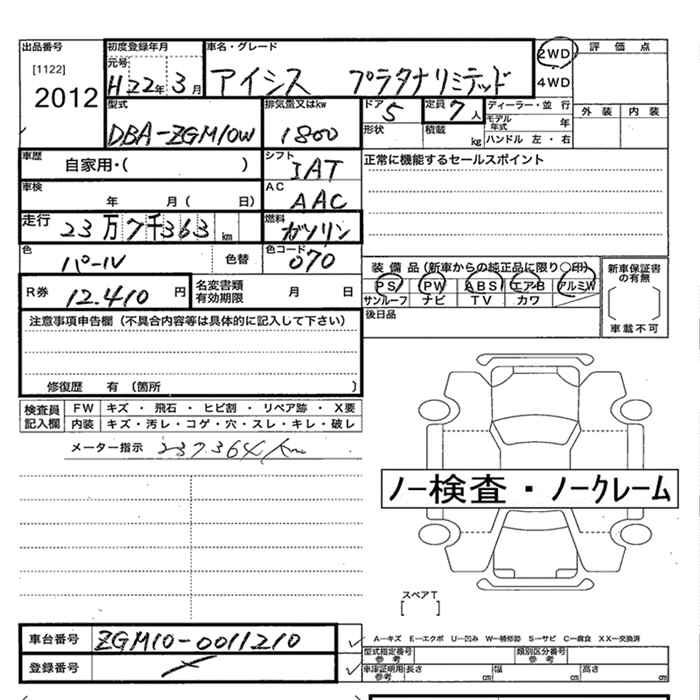 出品番号 初度登録年月 車名・グレード 2WD 評価点
[1122] 元号 H22年3月 アイシス プラタナリミテッド 4WD
2012 型式 排気量又はkw ドア 5 定員 7人 ディーラー・並行 外装 内装
DBA-ZGM10W 1800 形状 積載 kg モデル年式 年
ハンドル 左・右
車歴 自家用・( ) シフト IAT 正常に機能するセールスポイント
車検 年 月( 日) AC AAC
走行 23万7千363km 燃料 ガソリン
色 パール 色替 色コード 070 装備品(新車からの純正品に限り○印) 新車保証書の有無
R券 12.410円 名変書類有効期限 月 日 PS PW ABS エアB アルミW
サンルーフ ナビ TV カワ
注意事項申告欄(不具合内容等は具体的に記入して下さい) 後日品 車載不可
修復歴 有(箇所 )
検査員記入欄 FW キズ・飛石・ヒビ割・リペア跡・X要
内装 キズ・汚レ・コゲ・穴・スレ・キレ・破レ
メーター指示 237364km
ノー検査・ノークレーム
スペアT
[ ]
車台番号 ZGM10-0011210 A―キズ E―エクボ U―凹み W―補修跡 S―サビ C―腐食 XX―交換済
型式指定番号 参考 類別区分番号 参考
登録番号 車庫証明用 参考 長さ cm 幅 cm 高さ cm